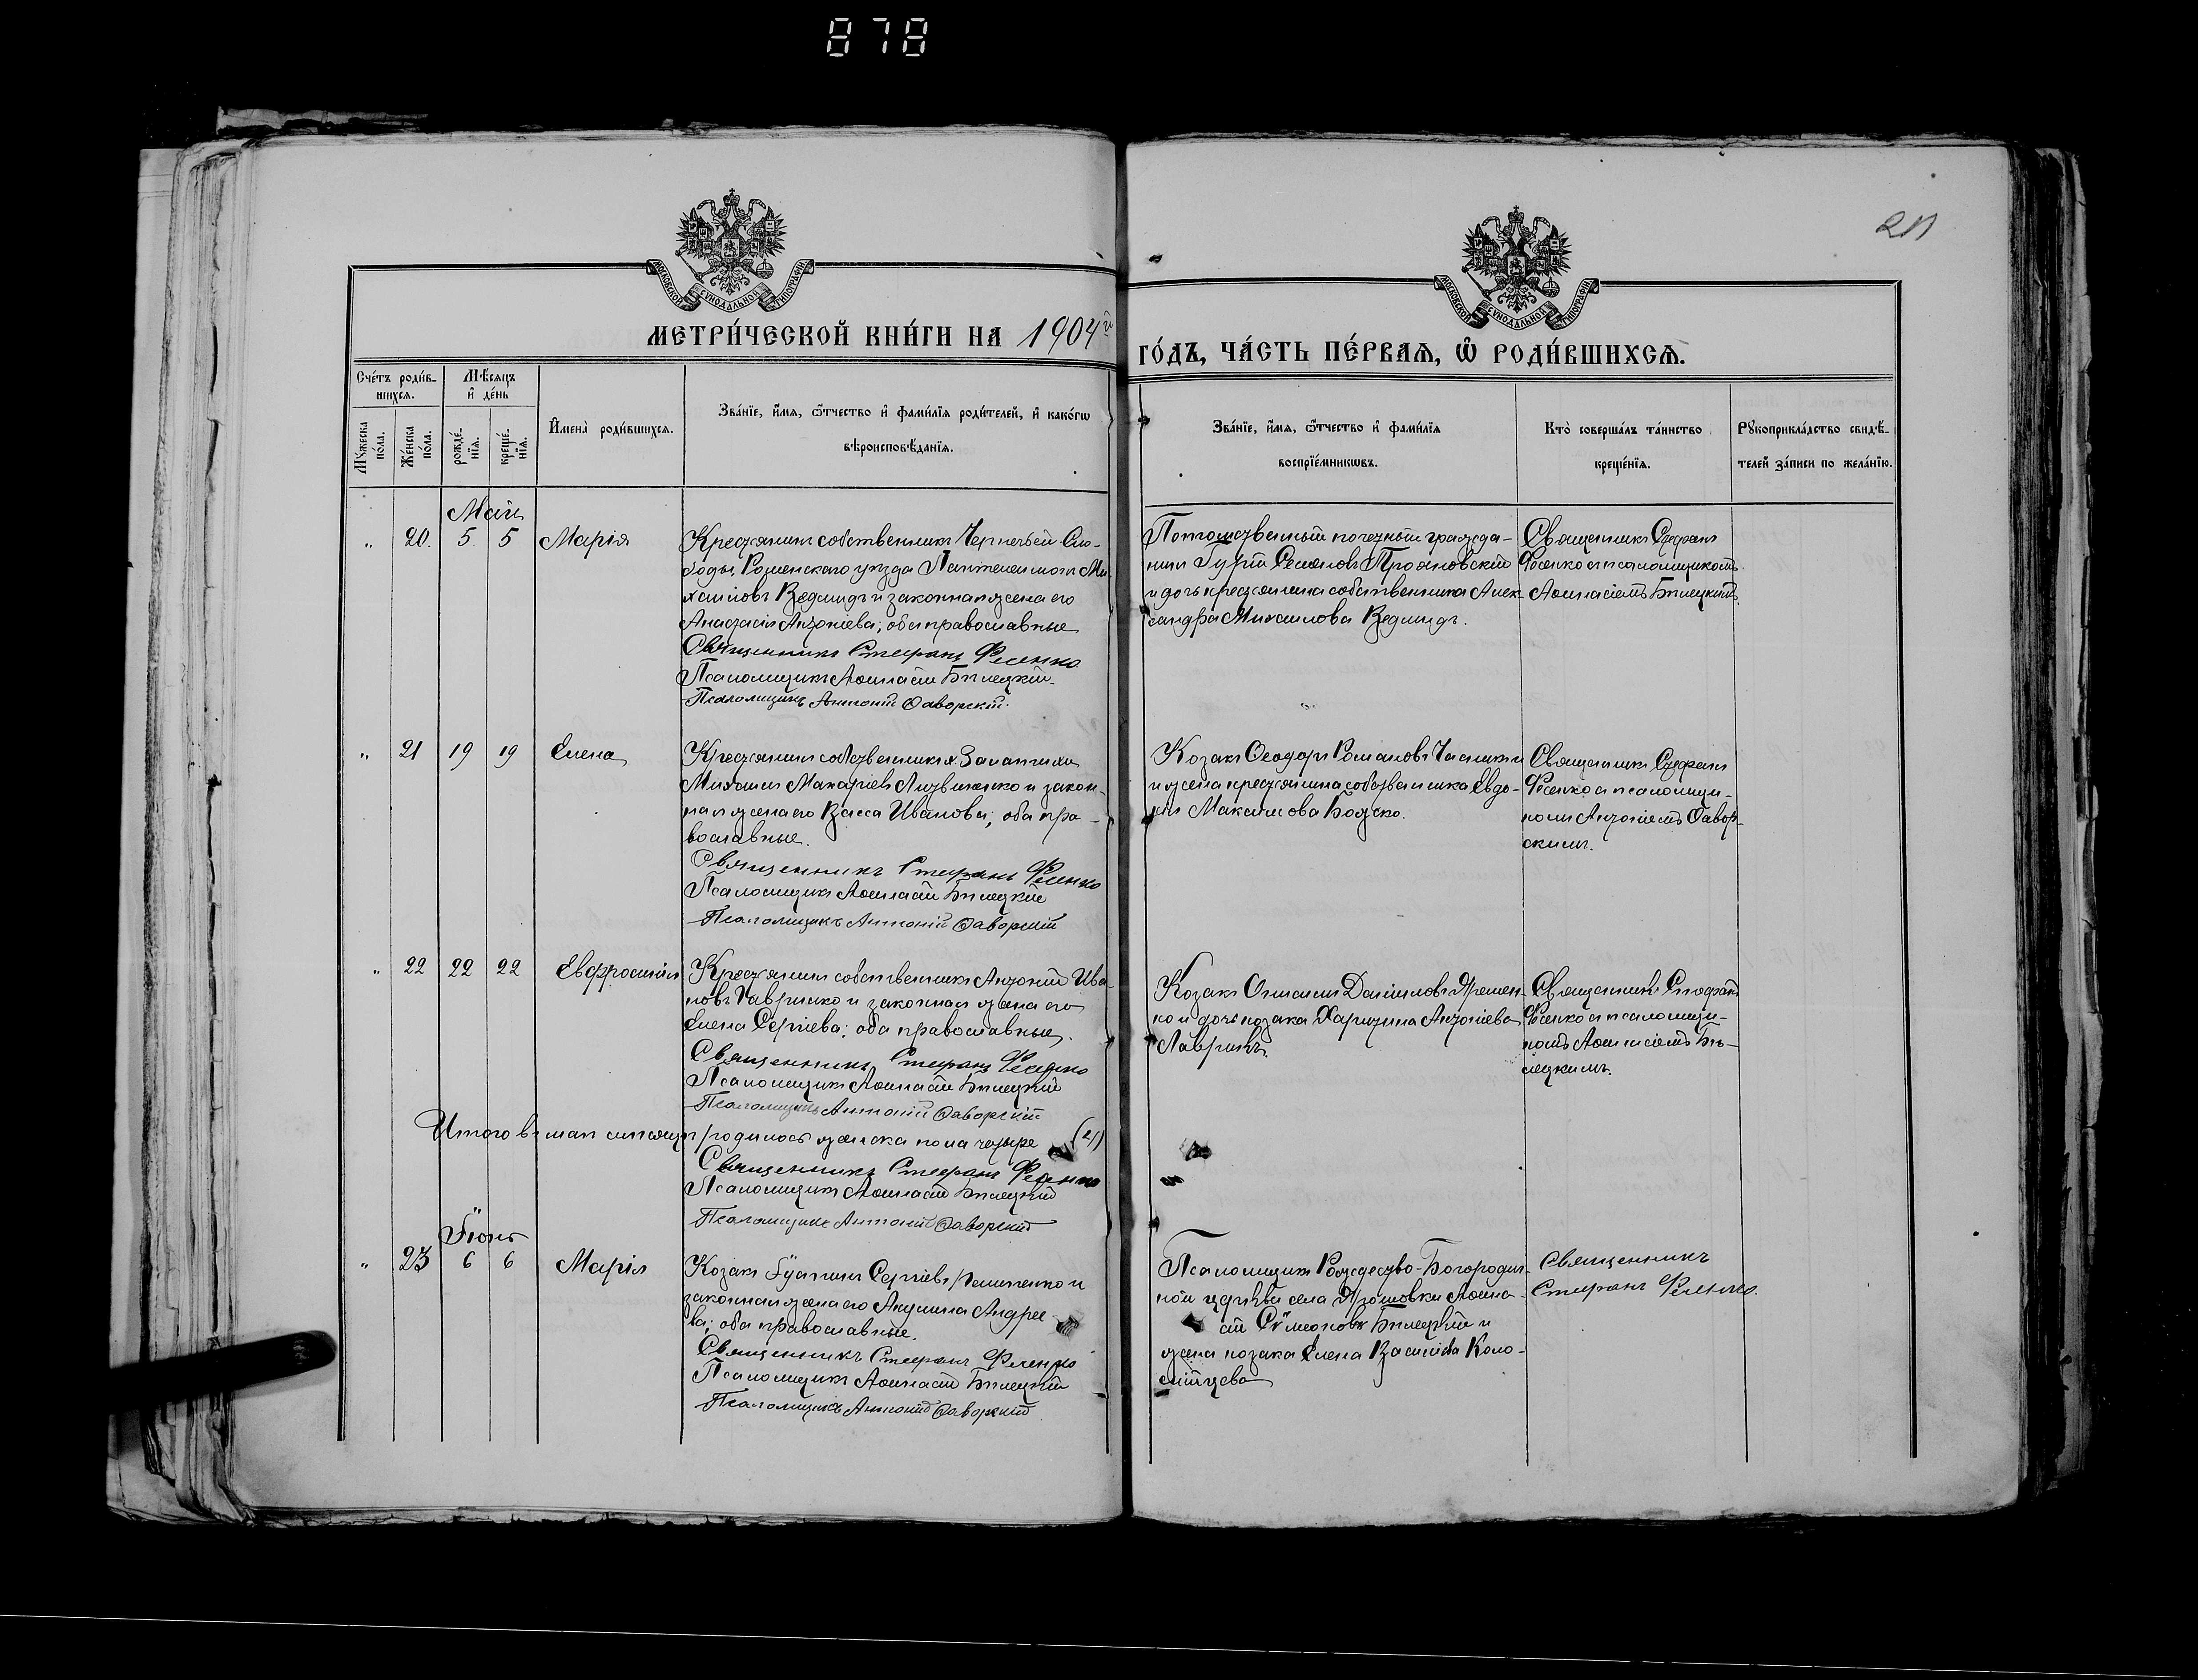 878
211
МОСКОВСКОЙ СУНОДАЛЬНОЙ ТИПОГРАФІИ
МОСКОВСКОЙ СУНОДАЛЬНОЙ ТИПОГРАФІИ
МЕТРИ́ЧЕСКОЙ КНИ́ГИ НА 1904й
ГО́ДЪ, ЧА́СТЬ ПЕ́РВАѦ, Ѡ РОДИ́ВШИХСѦ.
Сче́тъ роди́в-
шихсѧ.
Мѣ́сѧцъ
и де́нь
Мꙋ́жеска
по́ла.
Же́нска
по́ла.
рожде́-
нїѧ.
креще́-
нїѧ.
Имена̀ роди́вшихсѧ.
Зва́нїе, и́мѧ, ѻ҆́тчество и фами́лїѧ роди́телей, и како́гѡ
вѣроисповѣ́данїѧ.
Зва́нїе, и́мѧ, ѻ҆́тчество и фами́лїѧ
воспрїе́мникѡвъ.
Кто̀ соверша́лъ та́инство
креще́нїѧ.
Рꙋкоприкла́дство свидѣ́-
телей за́писи по жела́нїю.
Май
„ 20. 5. 5 Марія
Крестьянинъ собственникъ Чернечьей Сло-
боды, Роменскаго уѣзда Пантелеимонъ Ми-
хаиловъ Ведмидь и законная жена его
Анастасія Антоніева; оба православные
Священникъ Стефанъ Фесенко
Псаломщикъ Аѳанасій Бѣлецкій
Псаломщикъ Антоній Ѳаворскій.
Потомственный почетный гражда-
нинъ Гурій Семеновъ Трояновскій
и дочь крестьянина собственника Алек-
сандра Михаилова Ведмидь.
Священникъ Стефанъ
Фесенко съ псаломщикомъ
Аѳанасіемъ Бѣлецкимъ.
„ 21 19 19 Елена
Крестьянинъ собственникъ х. Залатихи
Михаилъ Макаріевъ Литвиненко и закон-
ная жена его Васса Иванова; оба пра-
вославные.
Священникъ Стефанъ Фесенко
Псаломщикъ Аѳанасій Бѣлецкій
Псаломщикъ Антоній Ѳаворскій
Козакъ Ѳеодоръ Романовъ
и жена крестьянина собственника Евдо-
кія Максимова Божко.
Священникъ Стефанъ
Фесенко съ псаломщи-
комъ Антоніемъ Ѳавор-
скимъ.
„ 22 22 22 Евфросинія
Крестьянинъ собственникъ Антоній Ива-
новъ Гавришко и законная жена его
Елена Сергіева; оба православные.
Священникъ Стефанъ Фесенко
Псаломщикъ Аѳанасій Бѣлецкій
Псаломщикъ Антоній Ѳаворскій
Козакъ Даніиловъ Яремен-
ко и дочь козака Харитина Антоніева
Лавринъ.
Священникъ Стефанъ
Фесенко съ псаломщи-
комъ Аѳанасіемъ Бѣ-
лецкимъ.
Итого въ маѣ мѣсяцѣ родилось женска пола четыре (4)
Священникъ Стефанъ Фесенко
Псаломщикъ Аѳанасій Бѣлецкій
Псаломщикъ Антоній Ѳаворскій
Іюнь
„ 23 6 6 Марія
Козакъ Іустинъ Сергіевъ и
законная жена его Акулина Андрее-
ва; оба православные.
Священникъ Стефанъ Фесенко
Псаломщикъ Аѳанасій Бѣлецкій
Псаломщикъ Антоній Ѳаворскій
Псаломщикъ Рождество-Богородич-
ной церкви села Ярошовки Аѳана-
сій Сѵмеоновъ Бѣлецкій и
жена козака Елена Василіева Коло-
мійцева
Священникъ
Стефанъ Фесенко.